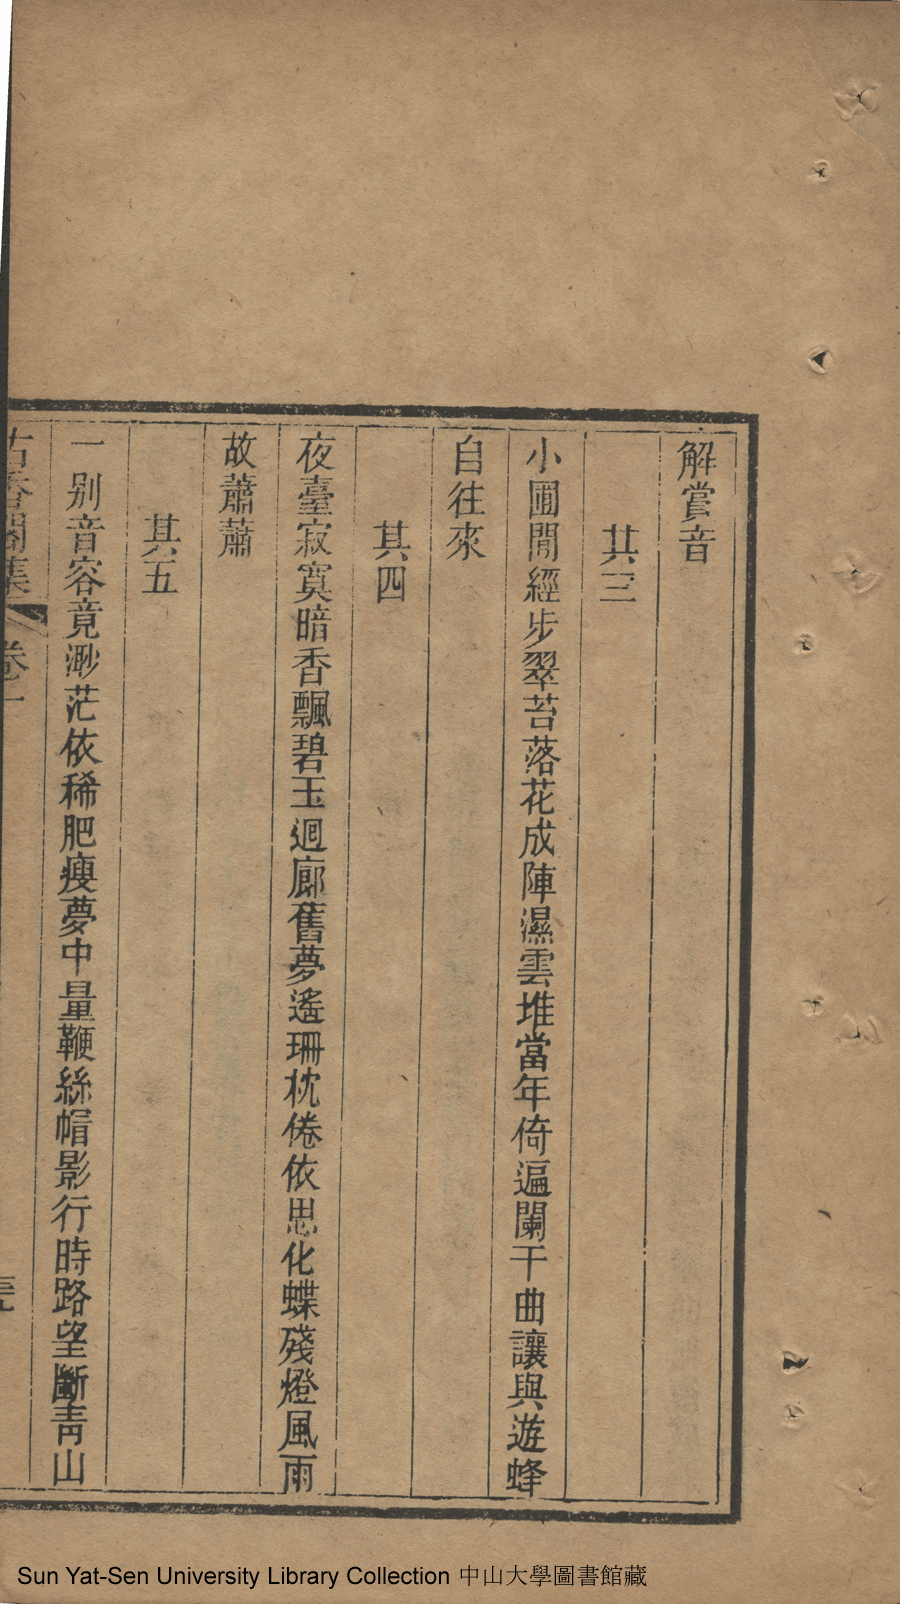 解嘗音
其三
小圃閒經步翠苔落花成陣濕雲堆當年倚遍闌干曲讓與遊蜂
自往來
其四
夜臺寂寞暗香飄碧玉迴廊舊夢遙珊枕倦依思化蝶殘燈風雨
故蕭蕭
其五
一別音容竟渺茫依稀肥瘦夢中量鞭絲帽影行時路望斷靑山
古香閣集 卷一
Sun Yat-Sen University Library Collection 中山大學圖書館藏